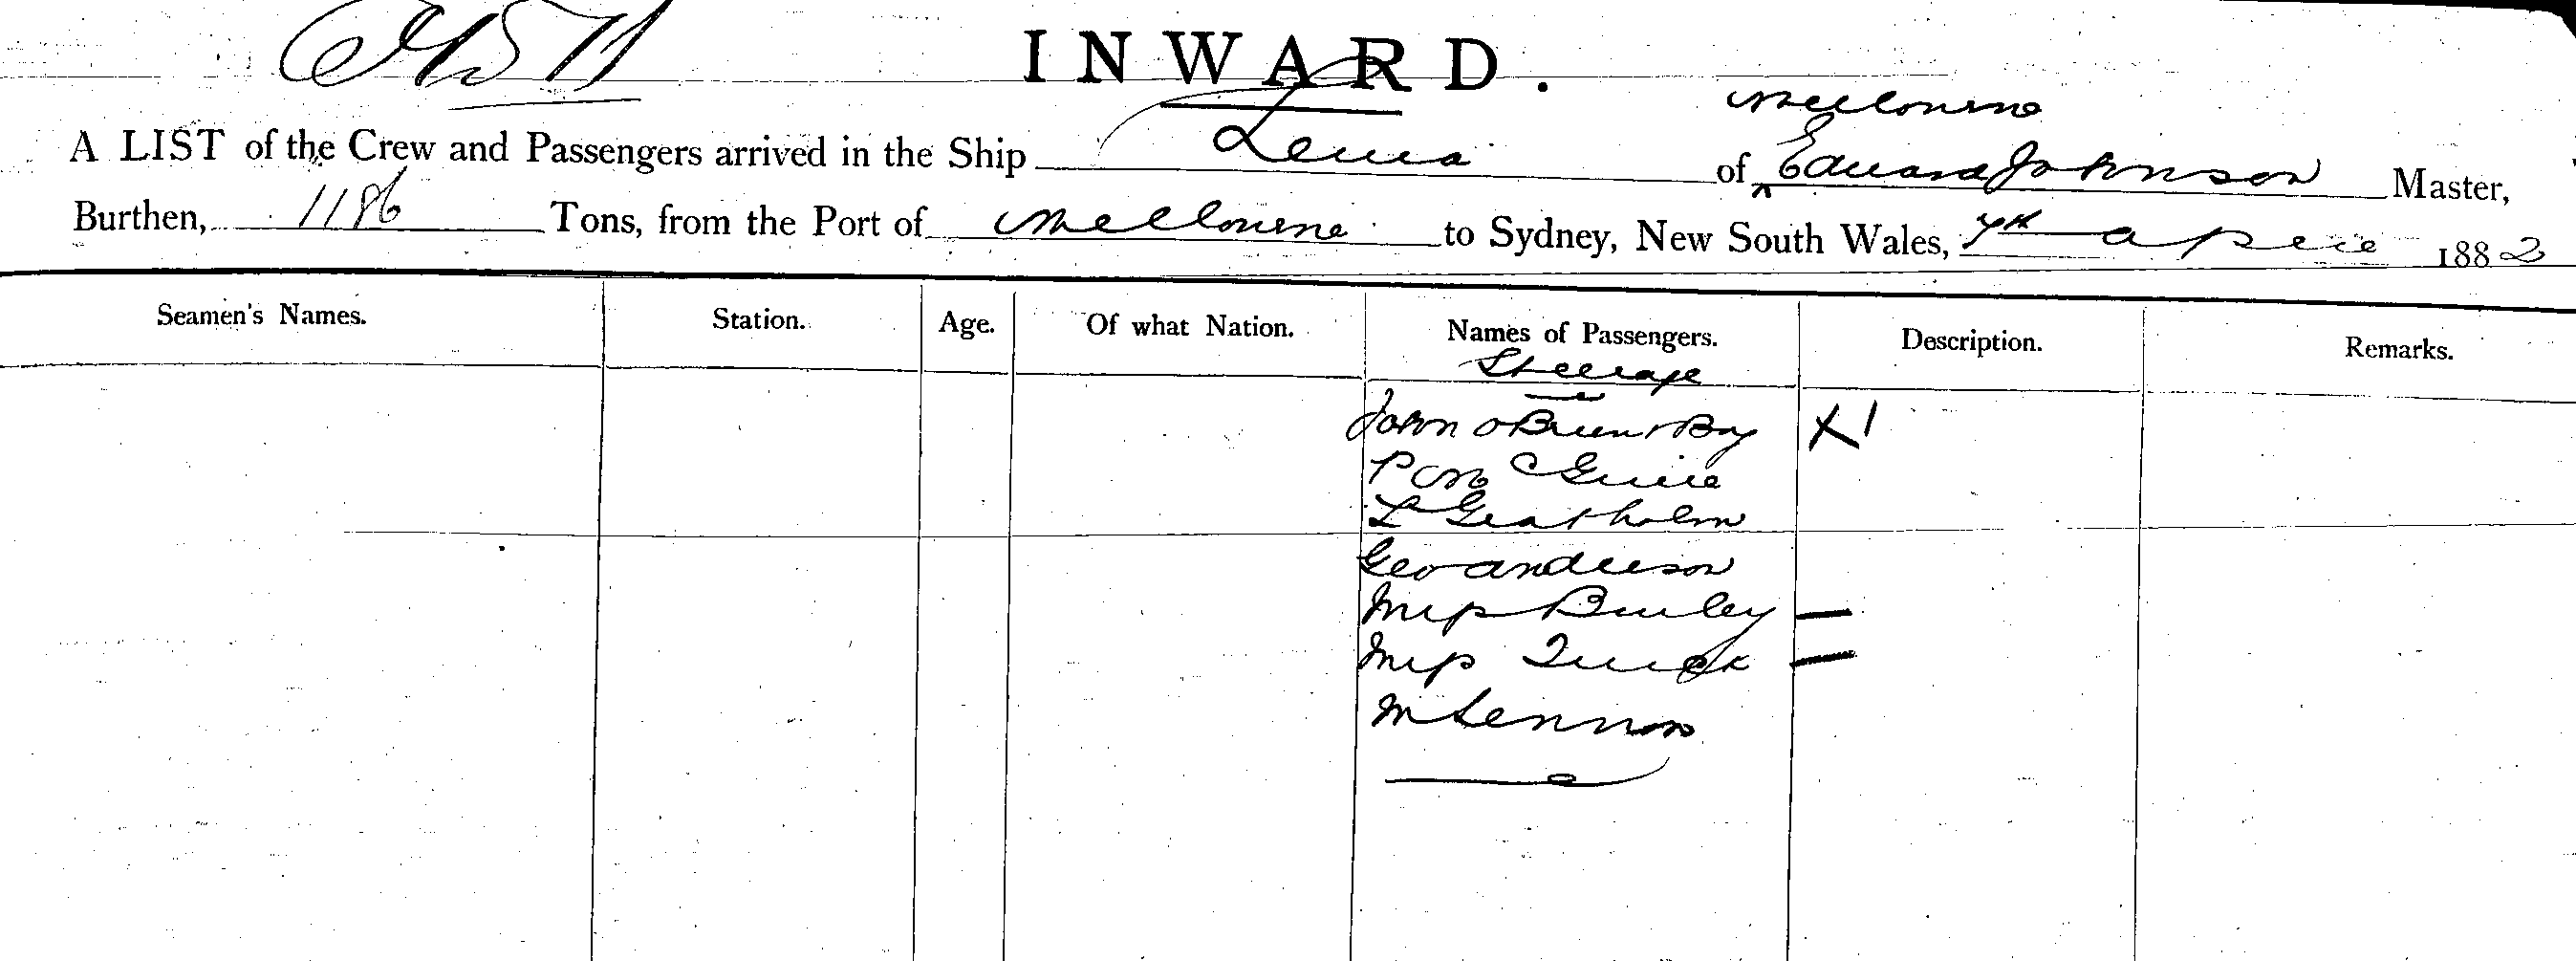 INWARD.
Melbourne
A LIST of the Crew and Passengers arrived in the Ship of Edward Johnson Master,
Burthen, 1186 Tons, from the Port of Melbourne to Sydney, New South Wales, 7th April 1882
Seamen's Names. Station. Age. Of what Nation. Names of Passengers. Description. Remarks.
Steerage
John OBrien & Boy X 1
P McGuire
L Greatholm
Geo Anderson
Miss Burley —
Miss Quick —
M Lennon